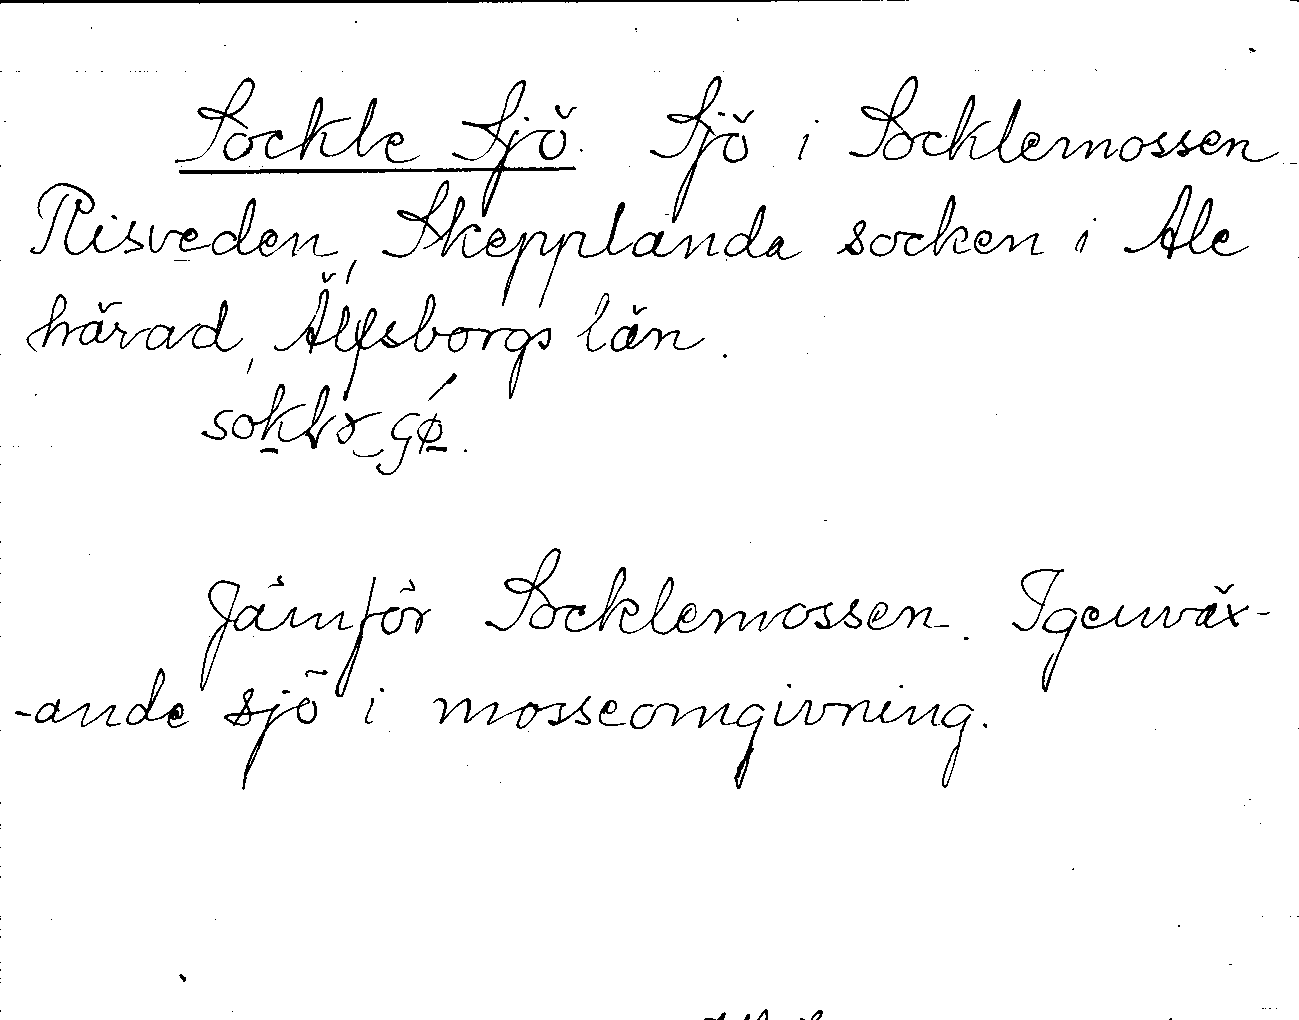 Sockle Sjö. Sjö i Socklemossen
Risveden, Skepplanda socken i Ale
härad, Älfsborgs län.
Jämför Socklemossen. Igenväx-
-ande sjö i mosseomgivning.